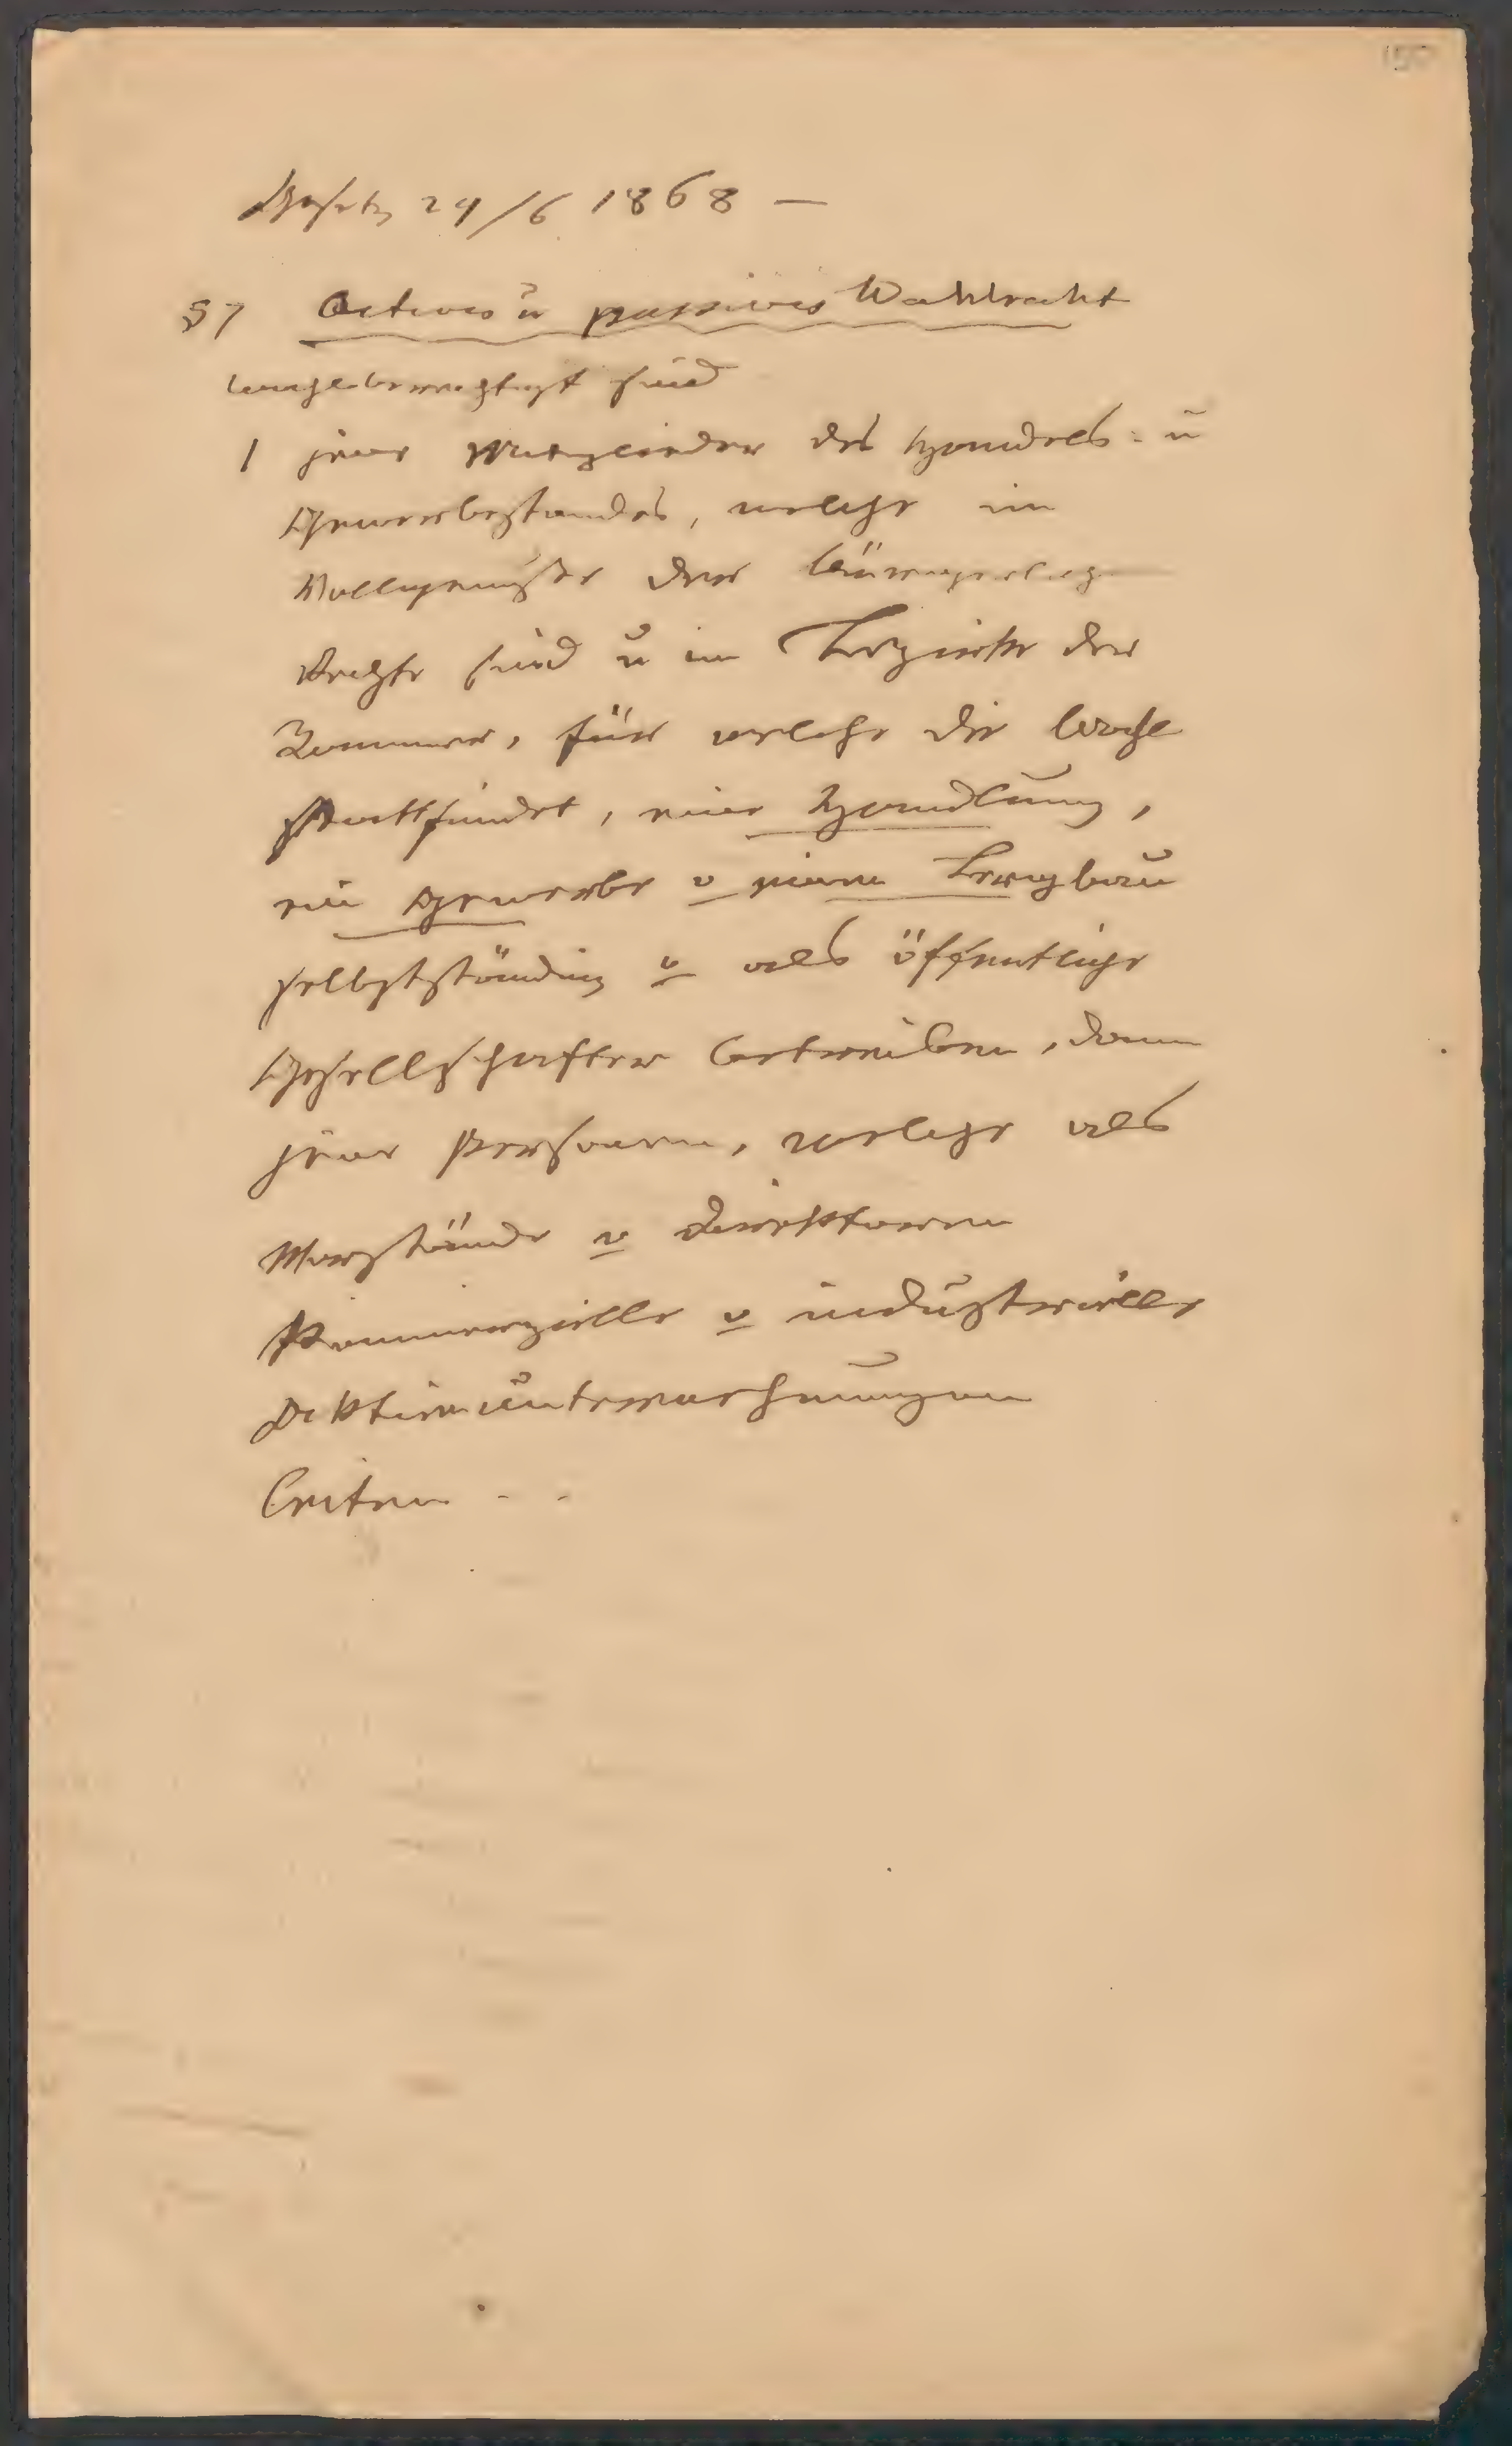 150
Gesetz 29/6 1868 —
§7 Actives u passives Wahlrecht
wahlberechtigt sind
1 jene Mitglieder des Handels- u
Gewerbestandes, welche im
Vollgenusse der bürgerlich
Rechte sind u im Bezirke der
Kammer, für welche die Wahl
stattfindet, eine Handlung,
ein Gewerbe o einen Bergbau
selbstständig o als öffentliche
Gesellschafter betreiben, dann
jene Personen, welche als
Vorstände o Direktoren
kommerzielle o industrielle
Aktienunternehmungen
leiten - -